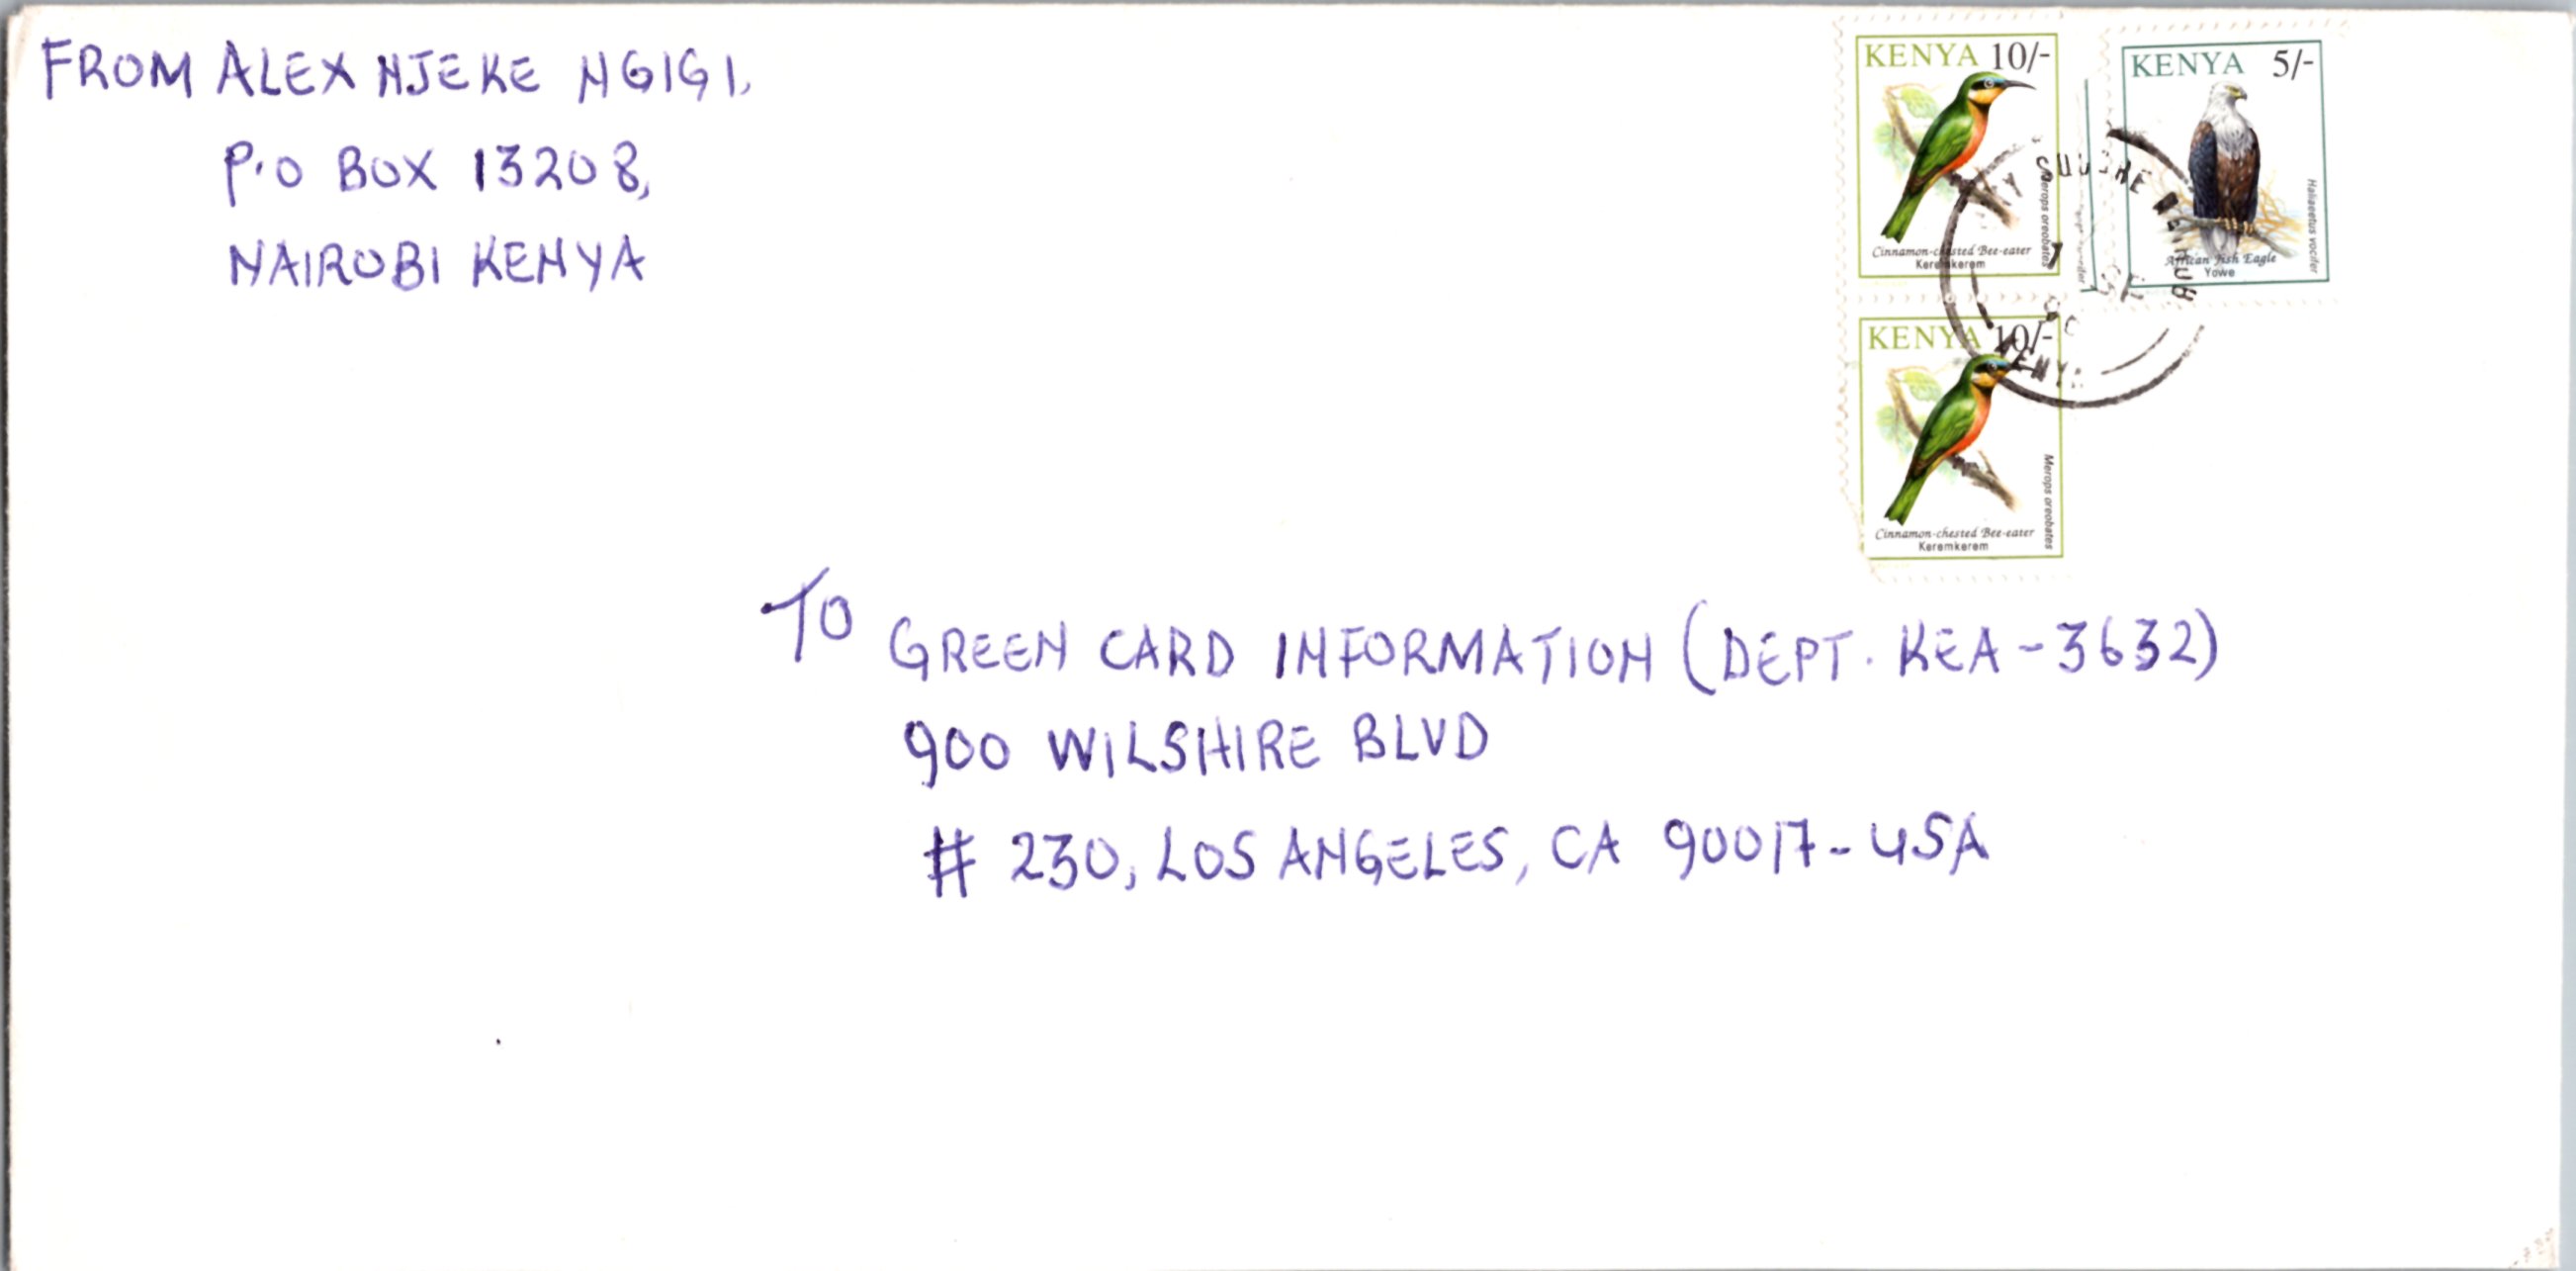 FROM ALEX NJEKE NGIGI,
P.O BOX 13208,
NAIROBI KENYA
KENYA 10/-
Merops oreobates
Cinnamon-chested Bee-eater
Keremkerem
KENYA 5/-
Haliaeetus vocifer
African Fish Eagle
Yowe
KENYA 10/-
Merops oreobates
Cinnamon-chested Bee-eater
Keremkerem
TO
GREEN CARD INFORMATION (DEPT. KEA-3632)
900 WILSHIRE BLVD
# 230, LOS ANGELES, CA 90017-USA